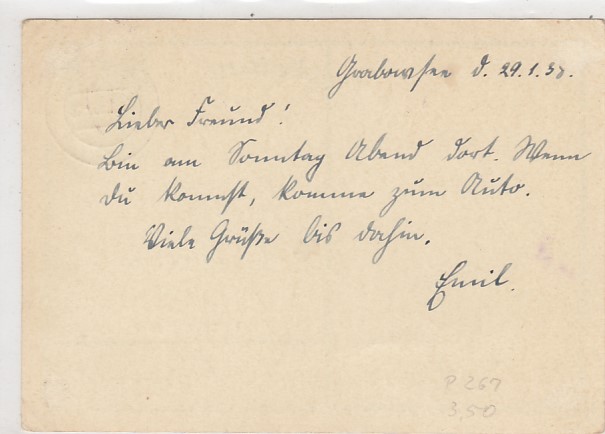 Grabowsee d. 29.1.38.
Lieber Freund!
Bin am Sonntag Abend dort. Wenn
Du kannst, komme zum Auto.
Viele Grüße bis dahin.
Emil.
P 267
3,50